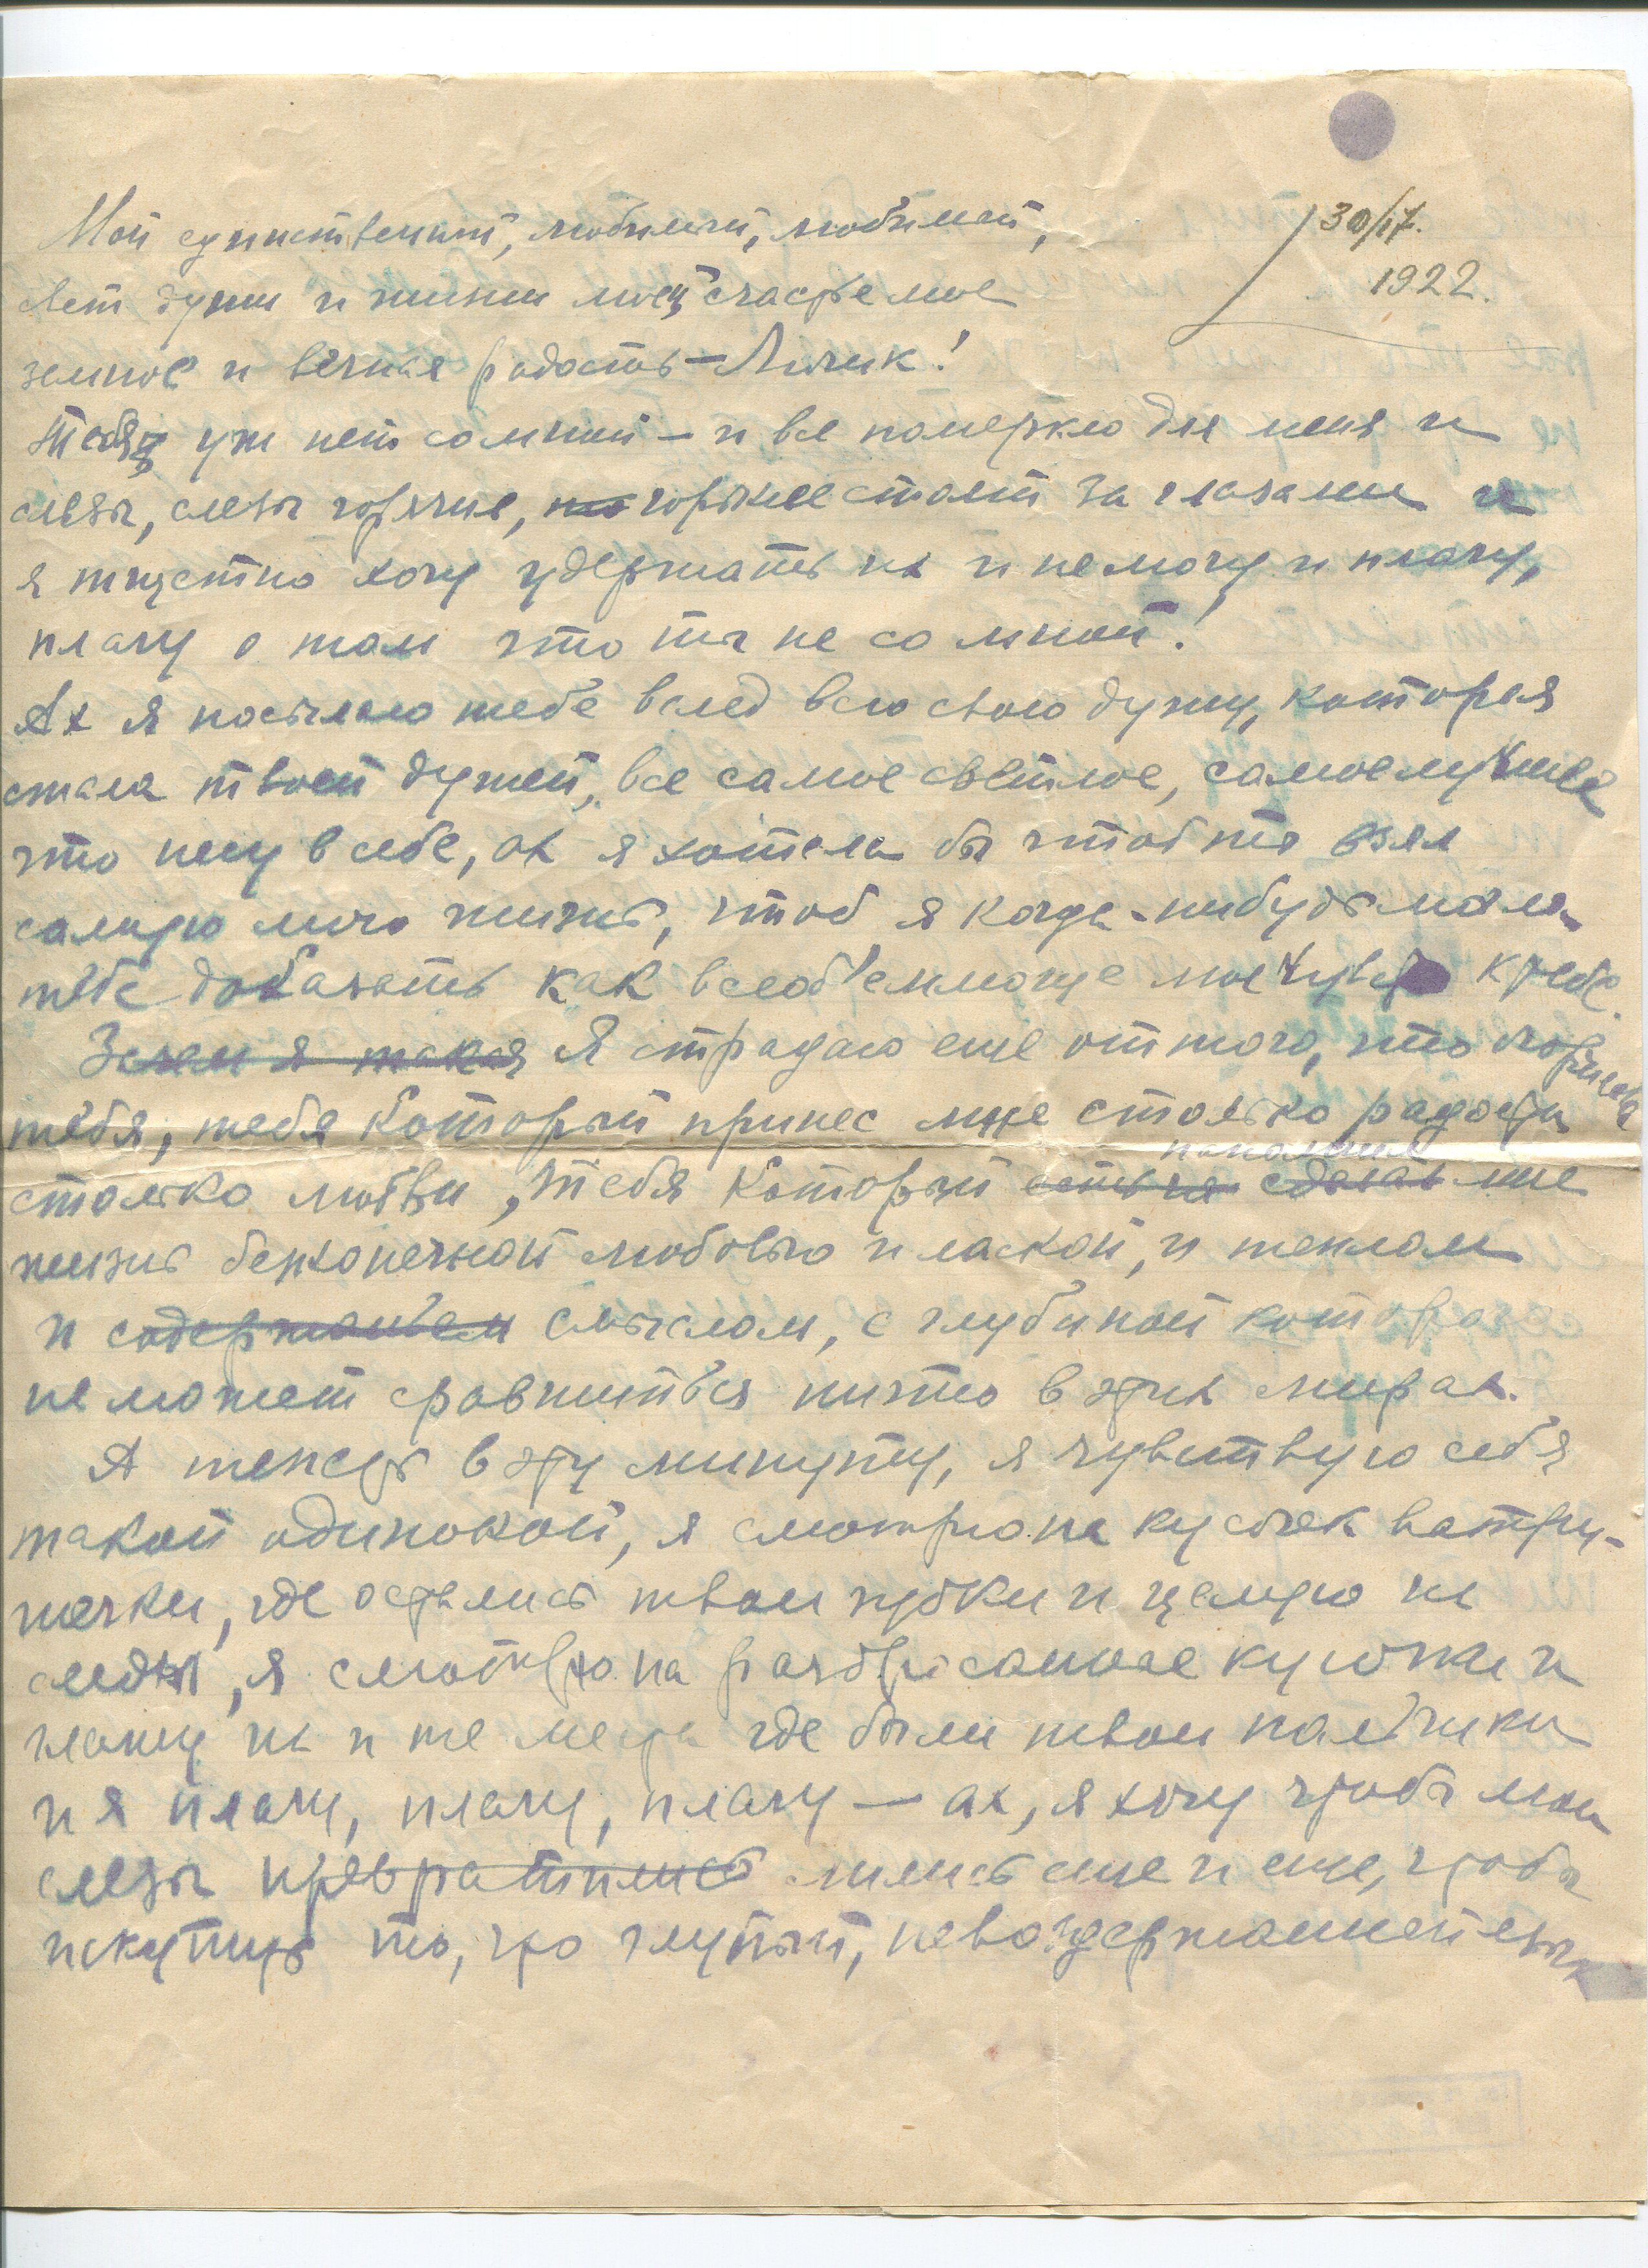 30/IV.
1922.
Мой единственный, любимый, любимый,
свет души и жизни моей, счастье мое
земное и вечная радость — Личик!
Тебя уж нет со мной — и все померкло для меня и
слезы, слезы горячие, горькие стоят за глазами и
я тщетно хочу удержать их и не могу и плачу,
плачу о том что ты не со мной!
Ах я посылаю тебе вслед всю свою душу, которая
стала твоей душой, все самое светлое, самое лучшее
что несу в себе, ах я хотела бы чтоб ты взял
самую мою жизнь, чтоб я когда-нибудь могла
тебе доказать как всеоб'емлюще мое к тебе.
Зачем я такая Я страдаю еще оттого, что огорчила
тебя, тебя который принес мне столько радости
столько любви, тебя который наполнил мне
жизнь бесконечной любовью и лаской, и теплом
и содержанием смыслом, с глубиной которого
не может сравниться ничто в этих мирах.
А теперь в эту минуту, я чувствую себя
такой одинокой, я смотрю на кусочек ватру-
шечки, где остались твои зубки и целую их
следы, я смотрю на разбросанные кусочки и
глажу их и те места где были твои пальчики
и я плачу, плачу, плачу — ах, я хочу чтобы мои
слезы превратились лились еще и еще, чтобы
искупить то, что глупый, невоздержанный язык